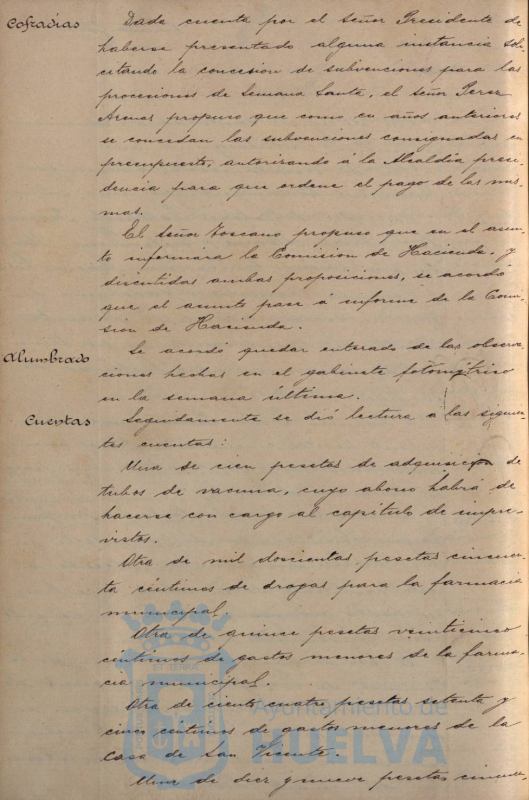 Cofradías
Dada cuenta por el señor Presidente de
haberse presentado alguna instancia soli
citando la concesion de subvenciones para las
procesiones de Semana Santa, el señor Perez
Arenas propuso que como en años anteriores
se concedan las subvenciones consignadas en
presupuesto, autorizando á la Alcaldía presi
dencia para que ordene el pago de las mis
mas.
El señor Toscano propuso que en el asun-
to informara la Comision de Hacienda, y
discutidas ambas proposiciones, se acordó
que el asunto pase á informe de la Comi
sion de Hacienda.
Alumbrado
Se acordó quedar enterado de las observa
ciones hechas en el gabinete fotométrico
en la semana última.
Cuentas
Seguidamente se dió lectura a las siguien
tes cuentas:
Una de cien pesetas de adquisición de
tubos de vacuna, cuyo abono habrá de
hacerse con cargo al capítulo de impre-
vistos.
Otra de mil doscientas pesetas cincuen-
ta céntimos de drogas para la farmacia
municipal.
Otra de quince pesetas veinticinco
céntimos de gastos menores de la farma-
cia municipal.
Otra de ciento cuatro pesetas setenta y
cinco centimos de gastos menores de la
Casa de San Vicente.
Una de diez y nueve pesetas cincuen-
Ayuntamiento de
HUELVA